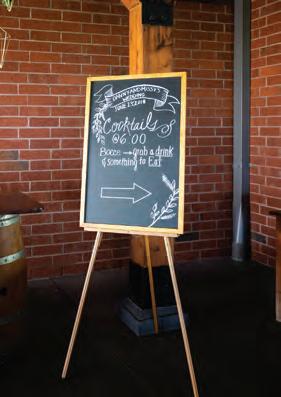 DANNY AND MISSY'S
WEDDING
JUNE 27, 2018
Cocktails
@ 6:00
Bocce → grab a drink
& something to Eat